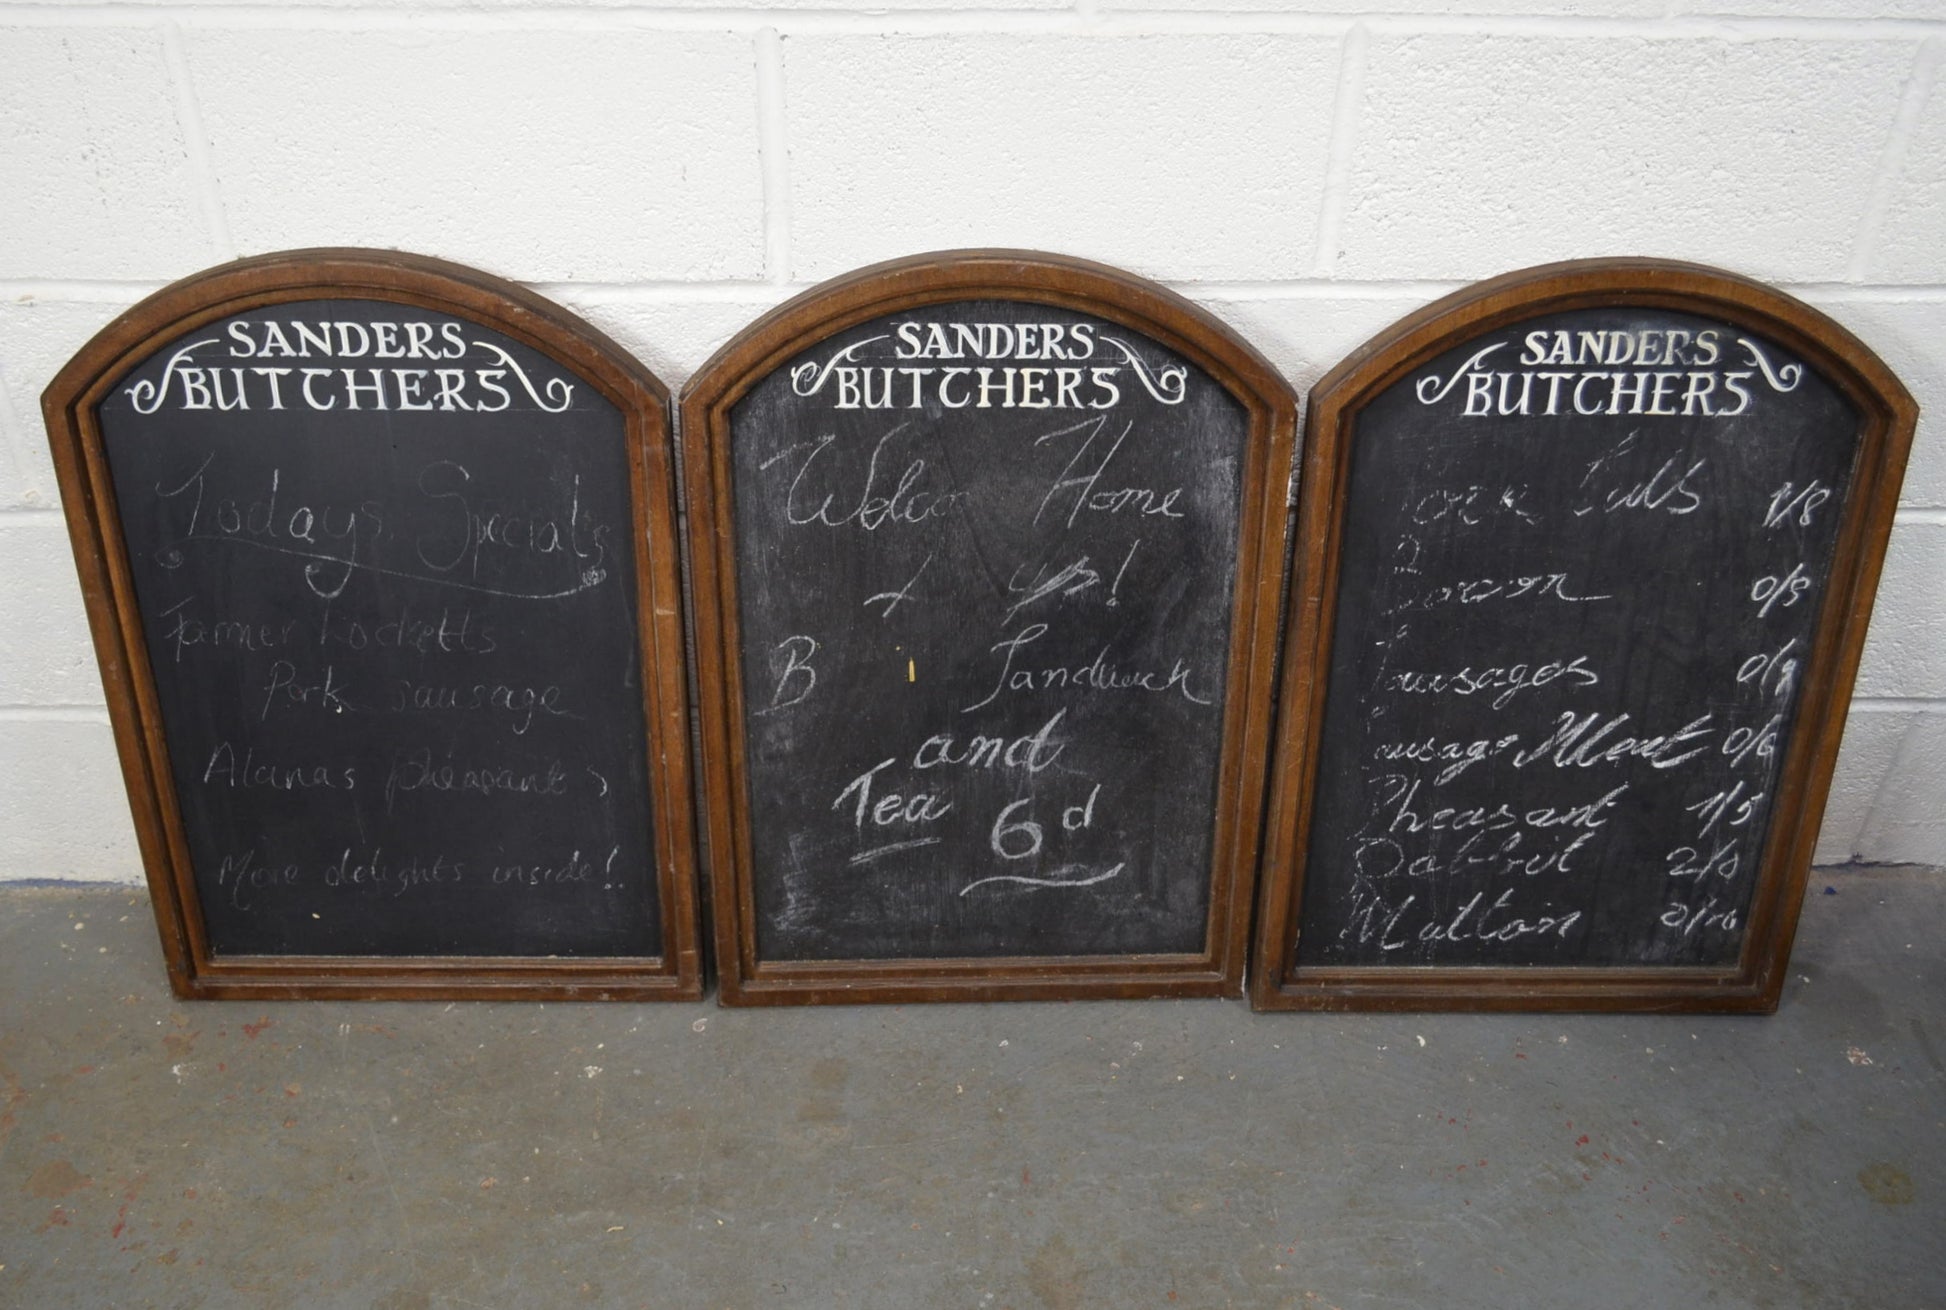 SANDERS
BUTCHERS
Todays Specials
Farmer Locketts
Pork sausage
Alanas pheasants
More delights inside!
SANDERS
BUTCHERS
Home
B Sandwich
and
Tea 6d
SANDERS
BUTCHERS
1/8
Bacon
Sausages
Sausage Meat 0/6
Pheasant 1/5
Mutton